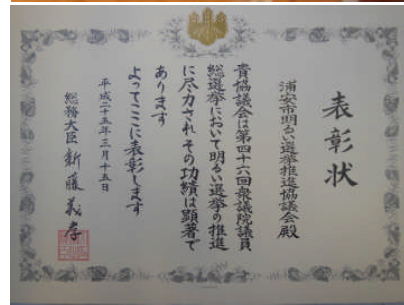 表彰状
浦安市明るい選挙推進協議会殿
貴協議会は第四十六回衆議院議員
総選挙において明るい選挙の推進
に尽力されその功績は顕著で
あります
よってここに表彰します
平成二十五年三月十五日
総務大臣 新藤義孝